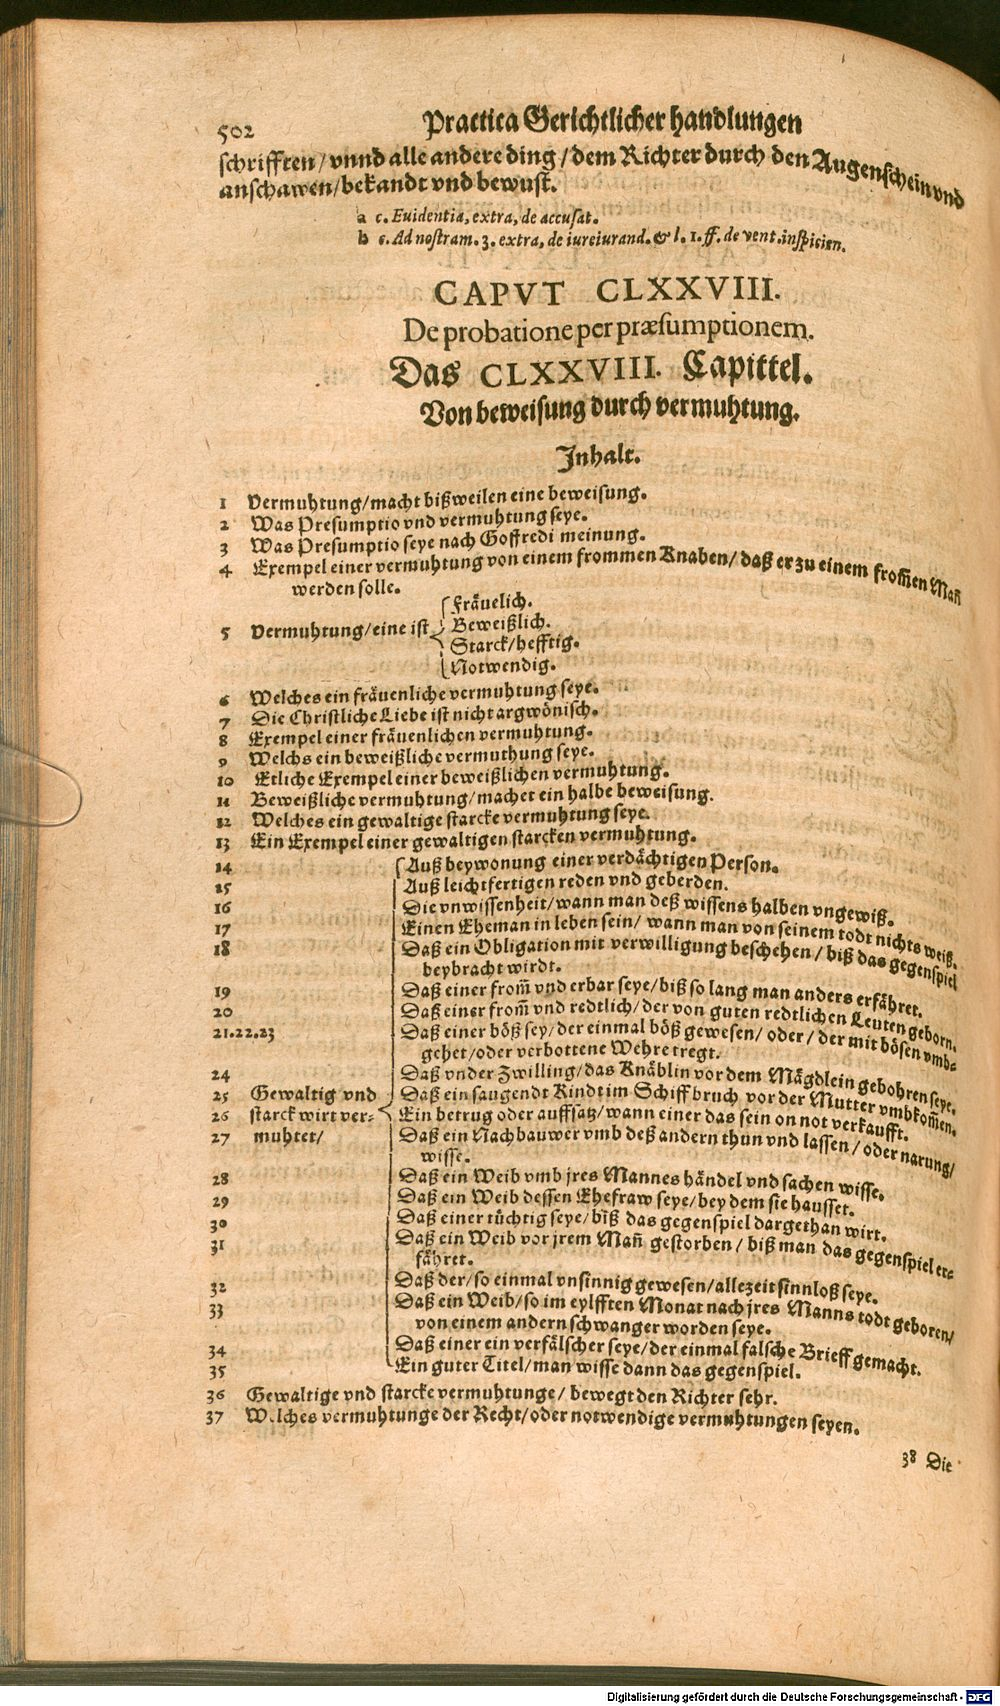 502 Practica Gerichtlicher handlungen
schrifften/ vnnd alle andere ding/ dem Richter durch den Augenschein vnd
anschawen/ bekandt vnd bewust.
a c. Euidentia, extra, de accusat.
b c. Ad nostram. 3. extra, de iureiurand. & l. 1. ff. de vent. inspicien.
CAPVT CLXXVIII.
De probatione per præsumptionem.
Das CLXXVIII. Capittel.
Von beweisung durch vermuhtung.
Inhalt.
1 Vermuhtung/ macht bißweilen eine beweisung.
2 Was Presumptio vnd vermuhtung seye.
3 Was Presumptio seye nach Goffredi meinung.
4 Exempel einer vermuhtung von einem frommen Knaben/ daß er zu einem from̃en Mañ
werden solle.
5 Vermuhtung/ eine ist
Fräuelich.
Beweißlich.
Starck/ hefftig.
Notwendig.
6 Welches ein fräuenliche vermuhtung seye.
7 Die Christliche Liebe ist nicht argwönisch.
8 Exempel einer fräuenlichen vermuhtung.
9 Welchs ein beweißliche vermuthung seye.
10 Etliche Exempel einer beweißlichen vermuhtung.
11 Beweißliche vermuhtung/ machet ein halbe beweisung.
12 Welches ein gewaltige starcke vermuhtung seye.
13 Ein Exempel einer gewaltigen starcken vermuhtung.
Gewaltig vnd
starck wirt ver-
muhtet/
14 Auß beywonung einer verdächtigen Person.
15 Auß leichtfertigen reden vnd geberden.
16 Die vnwissenheit/ wann man deß wissens halben vngewiß.
17 Einen Eheman in leben sein/ wann man von seinem todt nichts weiß.
18 Daß ein Obligation mit verwilligung beschehen/ biß das gegenspiel
beybracht wirdt.
19 Daß einer from̃ vnd erbar seye/ biß so lang man anders erfähret.
20 Daß einer from̃ vnd redtlich/ der von guten redtlichen Leuten geborn.
21.22.23 Daß einer böß sey/ der einmal böß gewesen/ oder/ der mit bösen vmb-
gehet/ oder verbottene Wehre tregt.
24 Daß vnder Zwilling/ das Knäblin vor dem Mägdlein gebohren seye.
25 Daß ein saugendt Kindt im Schiffbruch vor der Mutter vmbkom̃en.
26 Ein betrug oder auffsatz/ wann einer das sein on not verkaufft.
27 Daß ein Nachbauwer vmb deß andern thun vnd lassen/ oder narung/
wisse.
28 Daß ein Weib vmb jres Mannes händel vnd sachen wisse.
29 Daß ein Weib dessen Ehefraw seye/ bey dem sie hausset.
30 Daß einer tüchtig seye/ biß das gegenspiel dargethan wirt.
31 Daß ein Weib vor jrem Mañ gestorben/ biß man das gegenspiel er-
fähret.
32 Daß der/ so einmal vnsinnig gewesen/ allezeit sinnloß seye.
33 Daß ein Weib/ so im eylfften Monat nach jres Manns todt geboren/
von einem andern schwanger worden seye.
34 Daß einer ein verfälscher seye/ der einmal falsche Brieff gemacht.
35 Ein guter Titel/ man wisse dann das gegenspiel.
36 Gewaltige vnd starcke vermuhtunge/ bewegt den Richter sehr.
37 Welches vermuhtunge der Recht/ oder notwendige vermuhtungen seyen.
38 Die
Digitalisierung gefördert durch die Deutsche Forschungsgemeinschaft - DFG